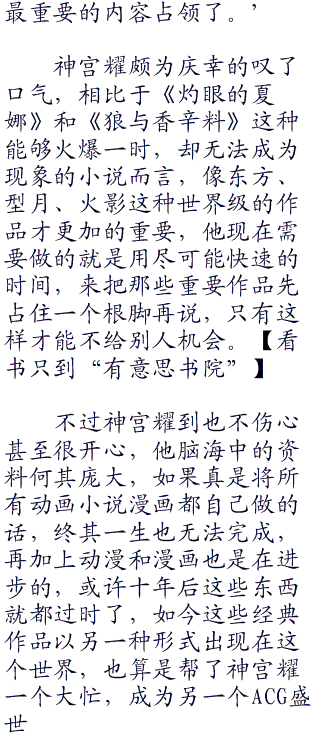 最重要的内容占领了。’
神宫耀颇为庆幸的叹了
口气，相比于《灼眼的夏
娜》和《狼与香辛料》这种
能够火爆一时，却无法成为
现象的小说而言，像东方、
型月、火影这种世界级的作
品才更加的重要，他现在需
要做的就是用尽可能快速的
时间，来把那些重要作品先
占住一个根脚再说，只有这
样才能不给别人机会。【看
书只到“有意思书院”】
不过神宫耀到也不伤心
甚至很开心，他脑海中的资
料何其庞大，如果真是将所
有动画小说漫画都自己做的
话，终其一生也无法完成，
再加上动漫和漫画也是在进
步的，或许十年后这些东西
就都过时了，如今这些经典
作品以另一种形式出现在这
个世界，也算是帮了神宫耀
一个大忙，成为另一个ACG盛
世